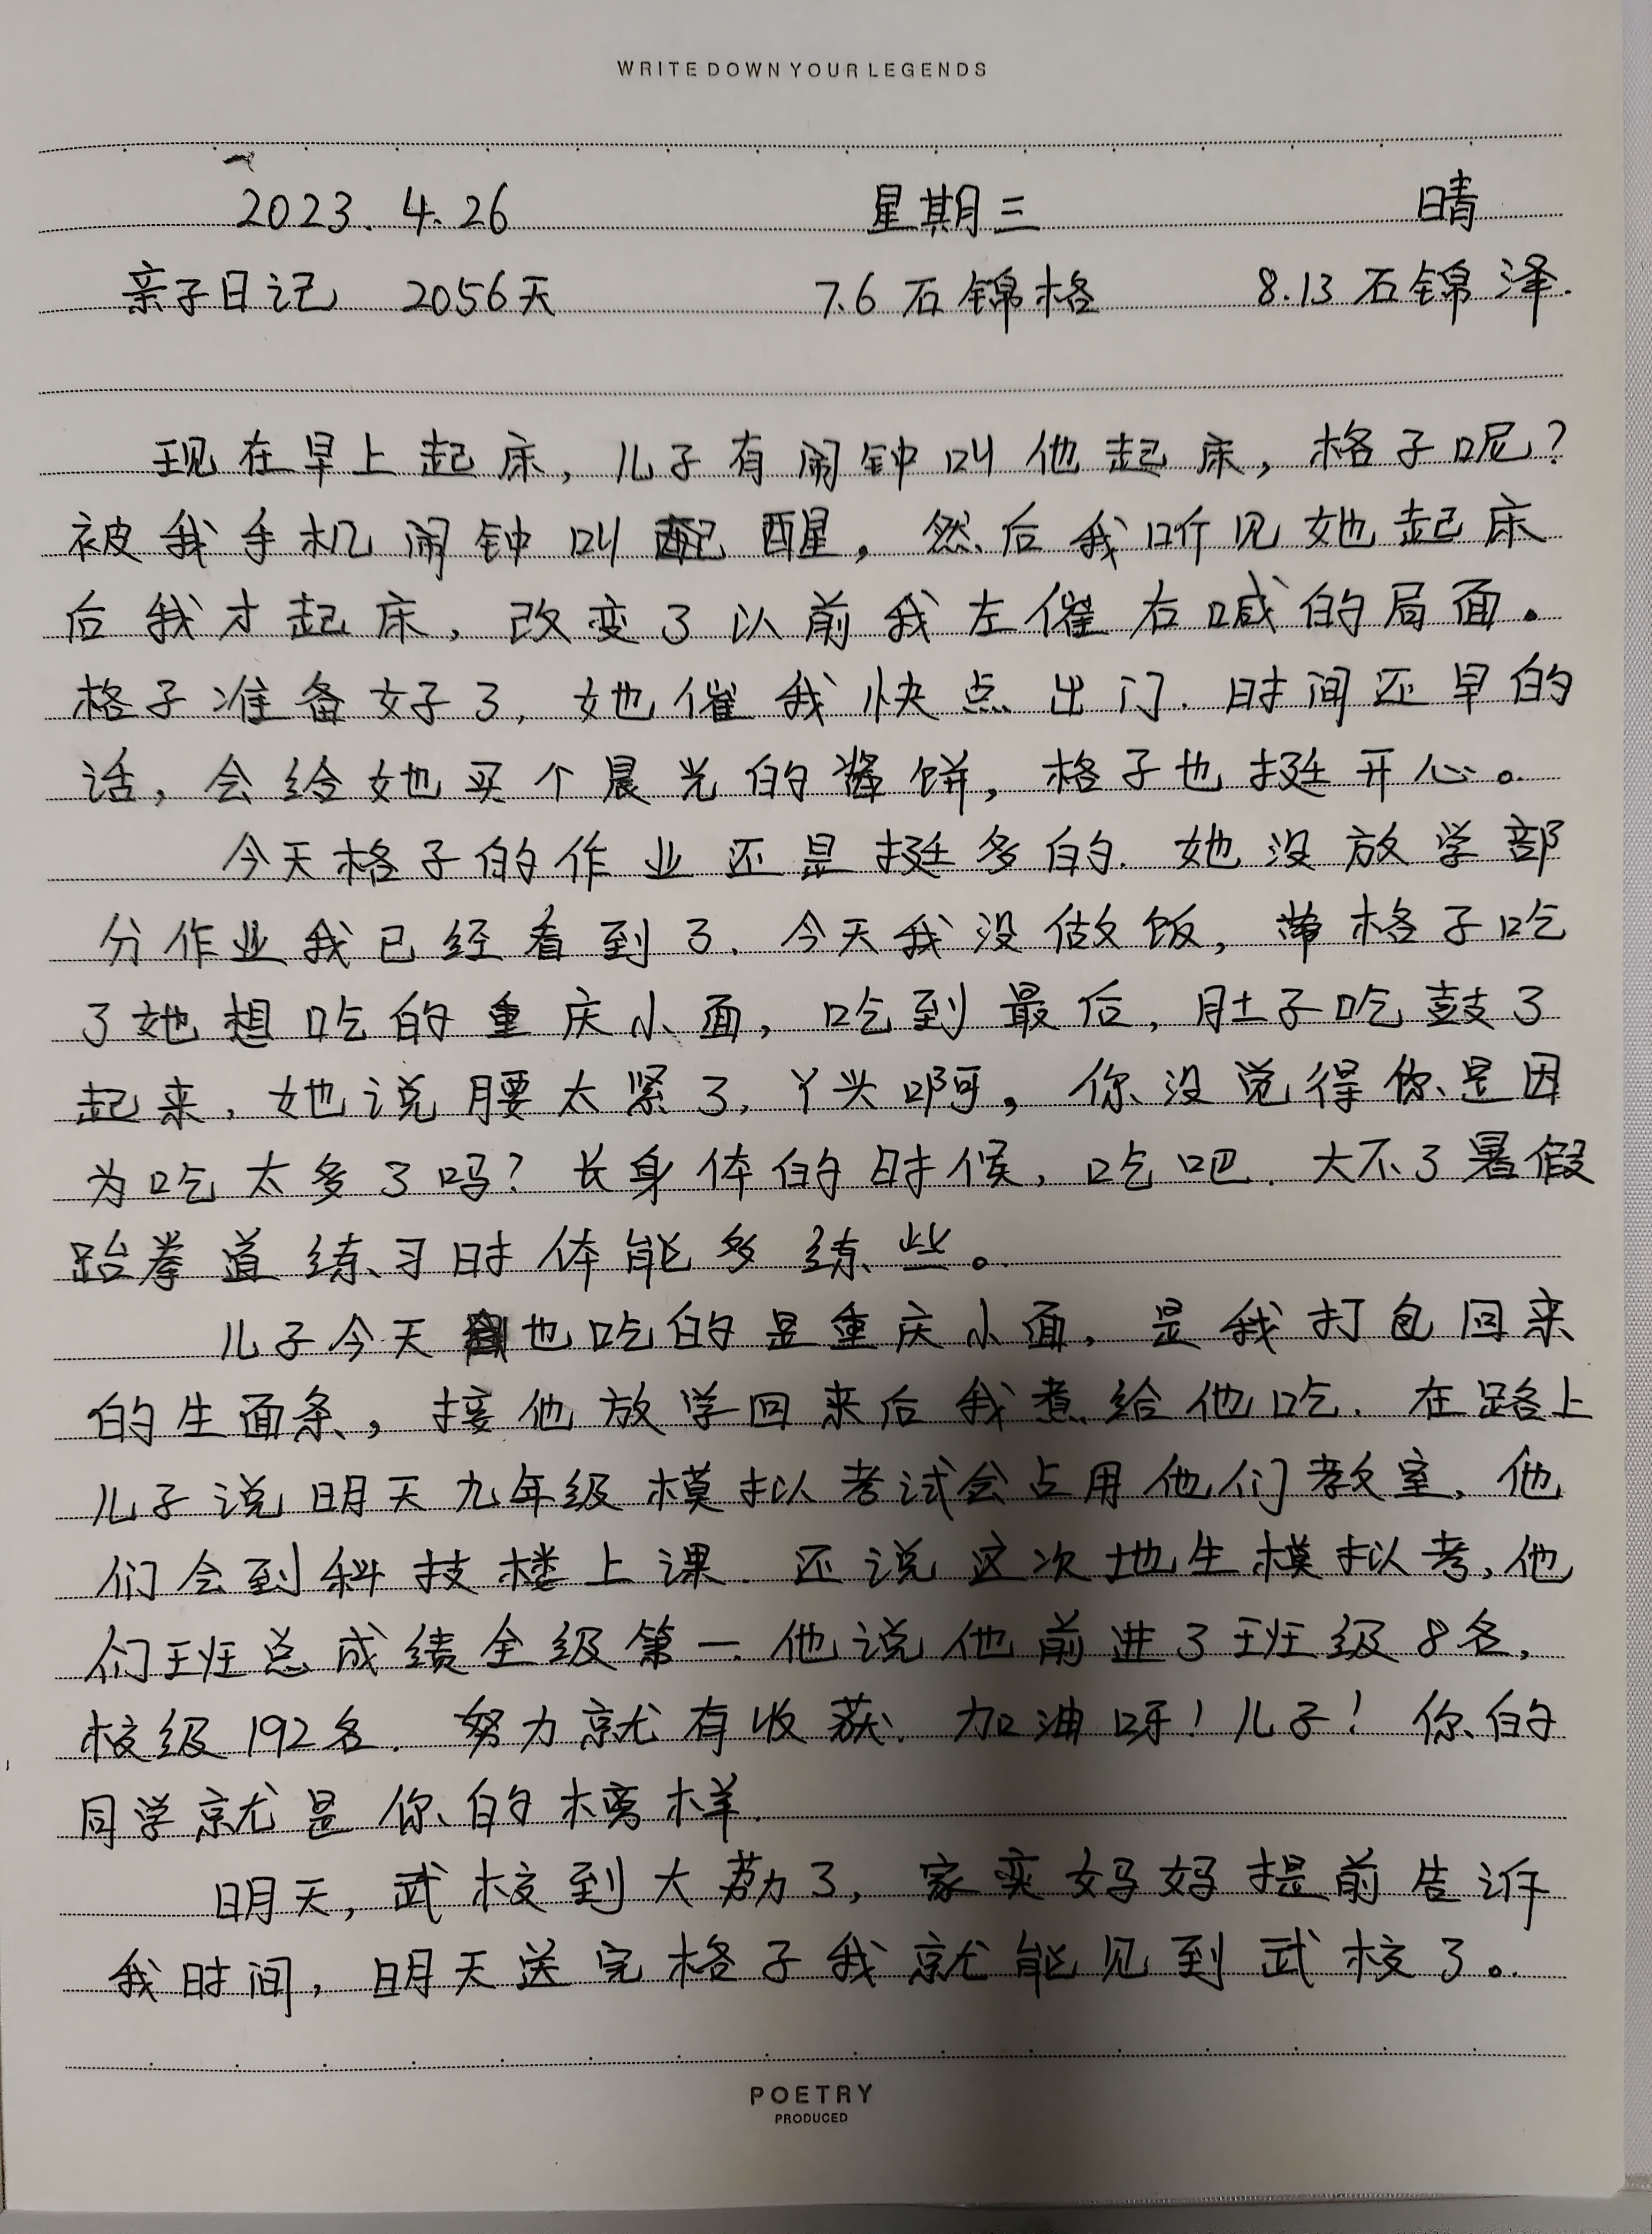 WRITE DOWN YOUR LEGENDS
2023. 4. 26 星期三 晴
亲子日记 2056天 7.6 石锦格 8.13 石锦泽.
现在早上起床, 儿子有闹钟叫他起床, 格子呢?
被我手机闹钟叫醒, 然后我听见她起床
后我才起床, 改变了以前我左催右喊的局面.
格子准备好了, 她催我快点出门. 时间还早的
话, 会给她买个晨光的酱饼, 格子也挺开心。
今天格子的作业还是挺多的. 她没放学部
分作业我已经看到了. 今天我没做饭, 带格子吃
了她想吃的重庆小面, 吃到最后, 肚子吃鼓了
起来, 她说腰太紧了, 丫头啊, 你没觉得你是因
为吃太多了吗? 长身体的时候, 吃吧. 大不了暑假
跆拳道练习时体能多练些。
儿子今天也吃的是重庆小面, 是我打包回来
的生面条, 接他放学回来后我煮给他吃. 在路上
儿子说明天九年级模拟考试会占用他们教室, 他
们会到科技楼上课. 还说这次地生模拟考, 他
们班总成绩全级第一. 他说他前进了班级8名,
校级192名. 努力就有收获. 加油呀! 儿子! 你的
同学就是你的榜样.
明天, 武校到大荔了, 家奕妈妈提前告诉
我时间, 明天送完格子我就能见到武校了。
POETRY
PRODUCED